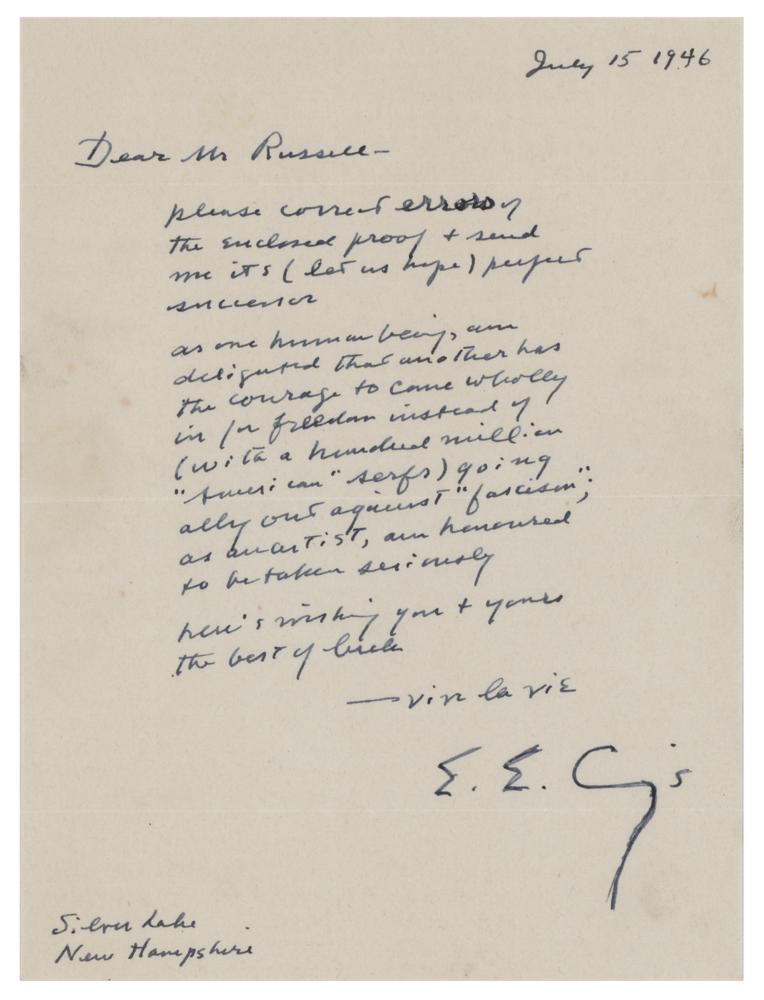 July 15 1946
Dear Mr Russell—
please correct errors of
the enclosed proof + send
me its (let us hope) perfect
successor
as one human being, am
delighted that another has
the courage to come wholly
in for freedom instead of
(with a hundred million
"American" serfs) going
ally out against "fascism";
as an artist, am honoured
to be taken seriously
here's wishing you + yours
the best of luck
—vive la vie
E. E. C
Silver Lake
New Hampshire